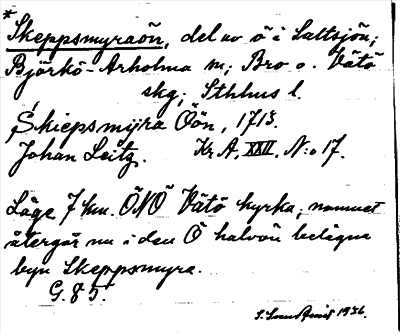 * Skeppsmyraön, del av ö i Saltsjön;
Björkö-Arholma sn; Bro o. Vätö
skg; Sthlms l.
Skiepsmÿra Öön, 1713.
Johan Leitz. Kr. A. XXII. N:o 17.
Läge 7 km. ÖNÖ Vätö kyrka; namnet
återgår nu i den Ö halvön belägna
byn Skeppsmyra.
G. 85.
1936.